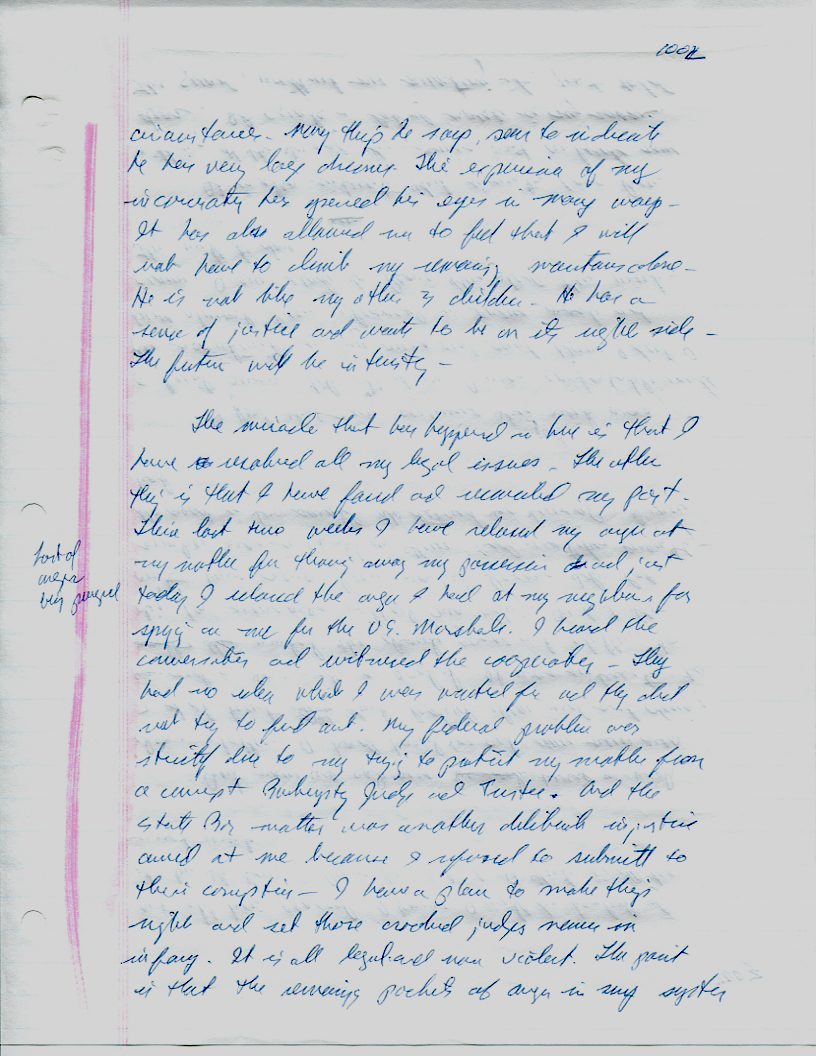 1002
circumstances. Many things he says, seem to indicate
he has very large dreams. The experience of my
incarceration has opened his eyes in many ways -
It has also allowed me to feel that I will
not have to climb my remaining mountains alone -
He is not like my other 3 children - He has a
sense of justice and wants to be on its right side -
The future will be interesting -
The miracle that has happened in here is that I
have resolved all my legal issues. The other
thing is that I have faced and revealed my past.
These last two weeks I have released my anger at
my mother for throwing away my possessions and just
today I released the anger I had at my neighbors for
spying on me for the U.S. Marshals. I heard the
conversation and witnessed the cooperation - They
had no idea what I was wanted for and they did
not try to find out. My federal problem was
strictly due to my trying to protect my mother from
a corrupt Bankruptcy Judge and Trustee. And the
State Bar matter was another deliberate injustice
aimed at me because I refused to submitt to
their corruption - I have a plan to make things
right and set those crooked judges names in
infamy. It is all legal and non violent. The point
is that the remaining pockets of anger in my system
Last of
anger
being purged